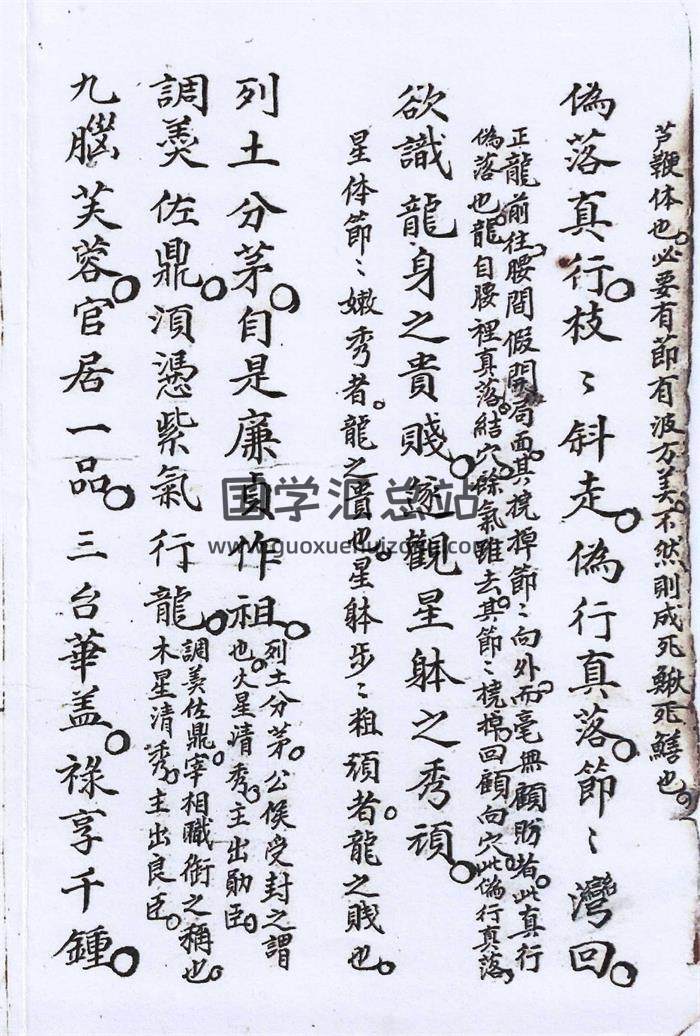 芦鞭体也。必要有節有波方美。不然則成死鰍死鱔也。
偽落真行。枝〻斜走。偽行真落。節〻灣回。
正龍前往。腰間假開局面。其橈棹節〻向外。而毫無顧盼者。此真行
偽落也。龍自腰裡真落。結穴。餘氣雖去。其節〻橈棹回顧向穴。此偽行真落
欲識龍身之貴賤。遂觀星躰之秀頑。
星体節〻嫩秀者。龍之貴也。星躰步〻粗頑者。龍之賤也。
列土分茅。自是廉貞作祖。
列土分茅。公侯受封之謂
也。火星清秀。主出勛臣。
調羹佐鼎。須憑紫氣行龍。
調羹佐鼎。宰相職銜之稱也。
木星清秀。主出良臣。
九腦芙蓉。官居一品。三台華盖。祿享千鍾。
国学汇总站
www.guoxuehuizong.com